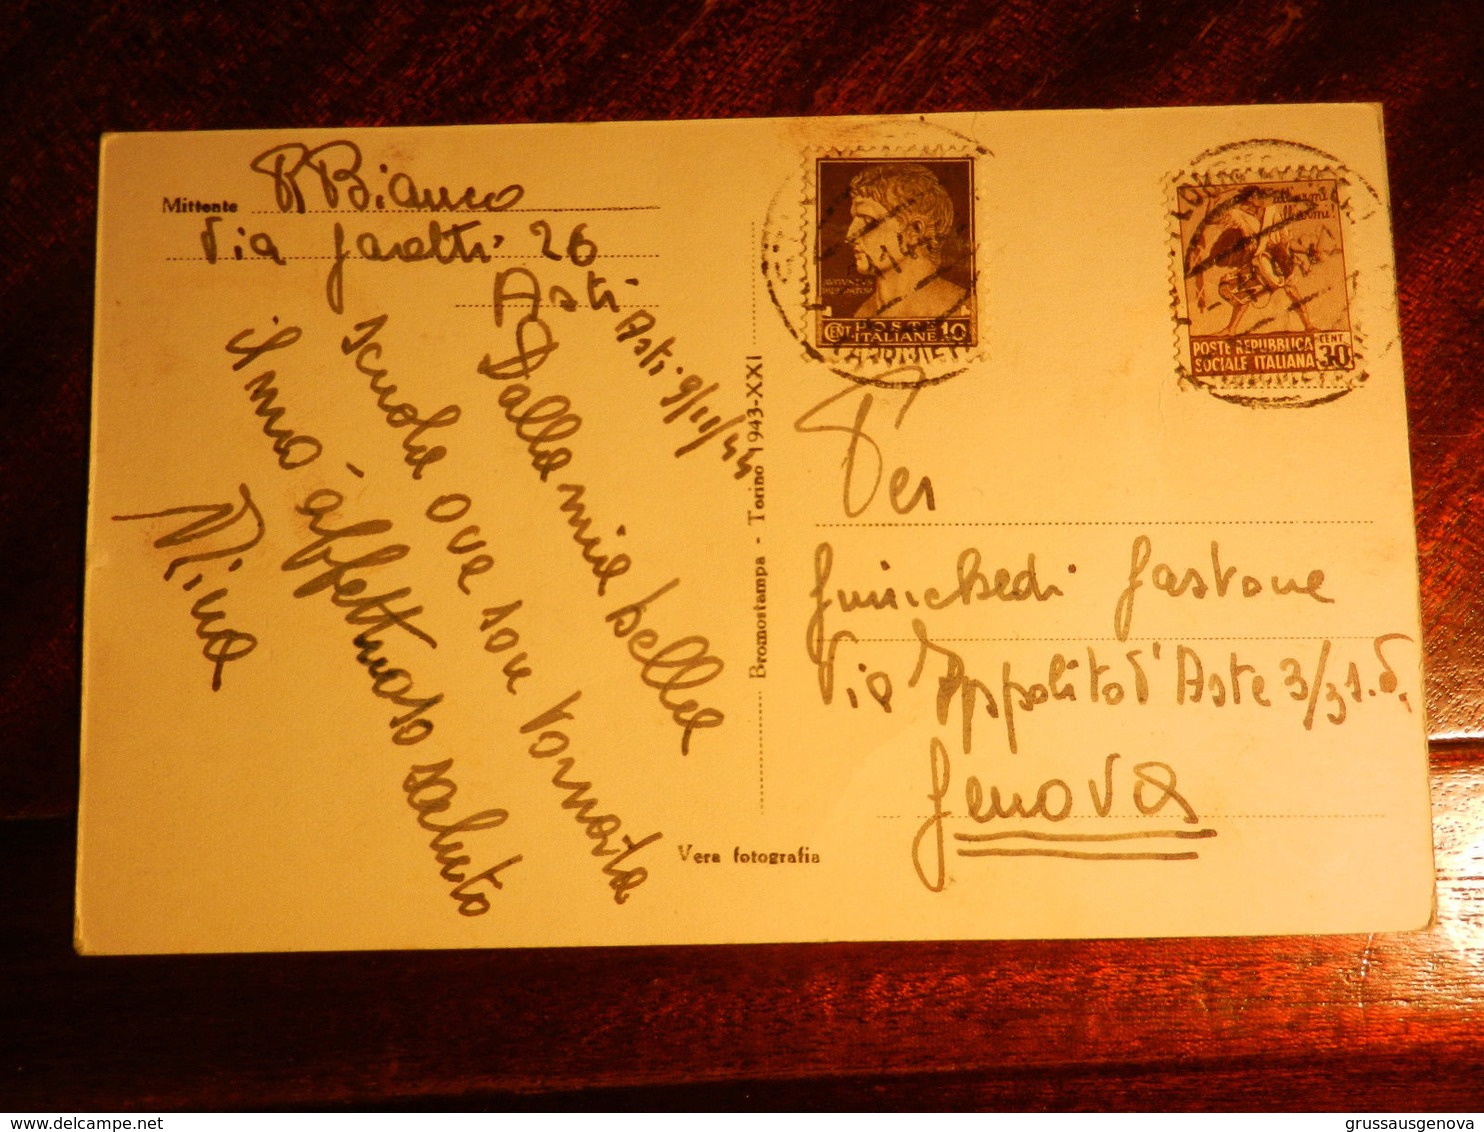 Mittente R Bianco
Via Garetti 26
Asti
Asti 9/11/44
Dalla mia bella
scuola ove son tornata
il mio affettuoso saluto
Nina
Bromostampa - Torino 1943-XXI
Vera fotografia
CENT POSTE 10
ITALIANE
all'armi
all'armi!
POSTE REPUBBLICA
SOCIALE ITALIANA
CENT
30
Per
Gastone
Via Ippolito d'Aste 3/31.d.
Genova
delcampe.net
grussausgenova